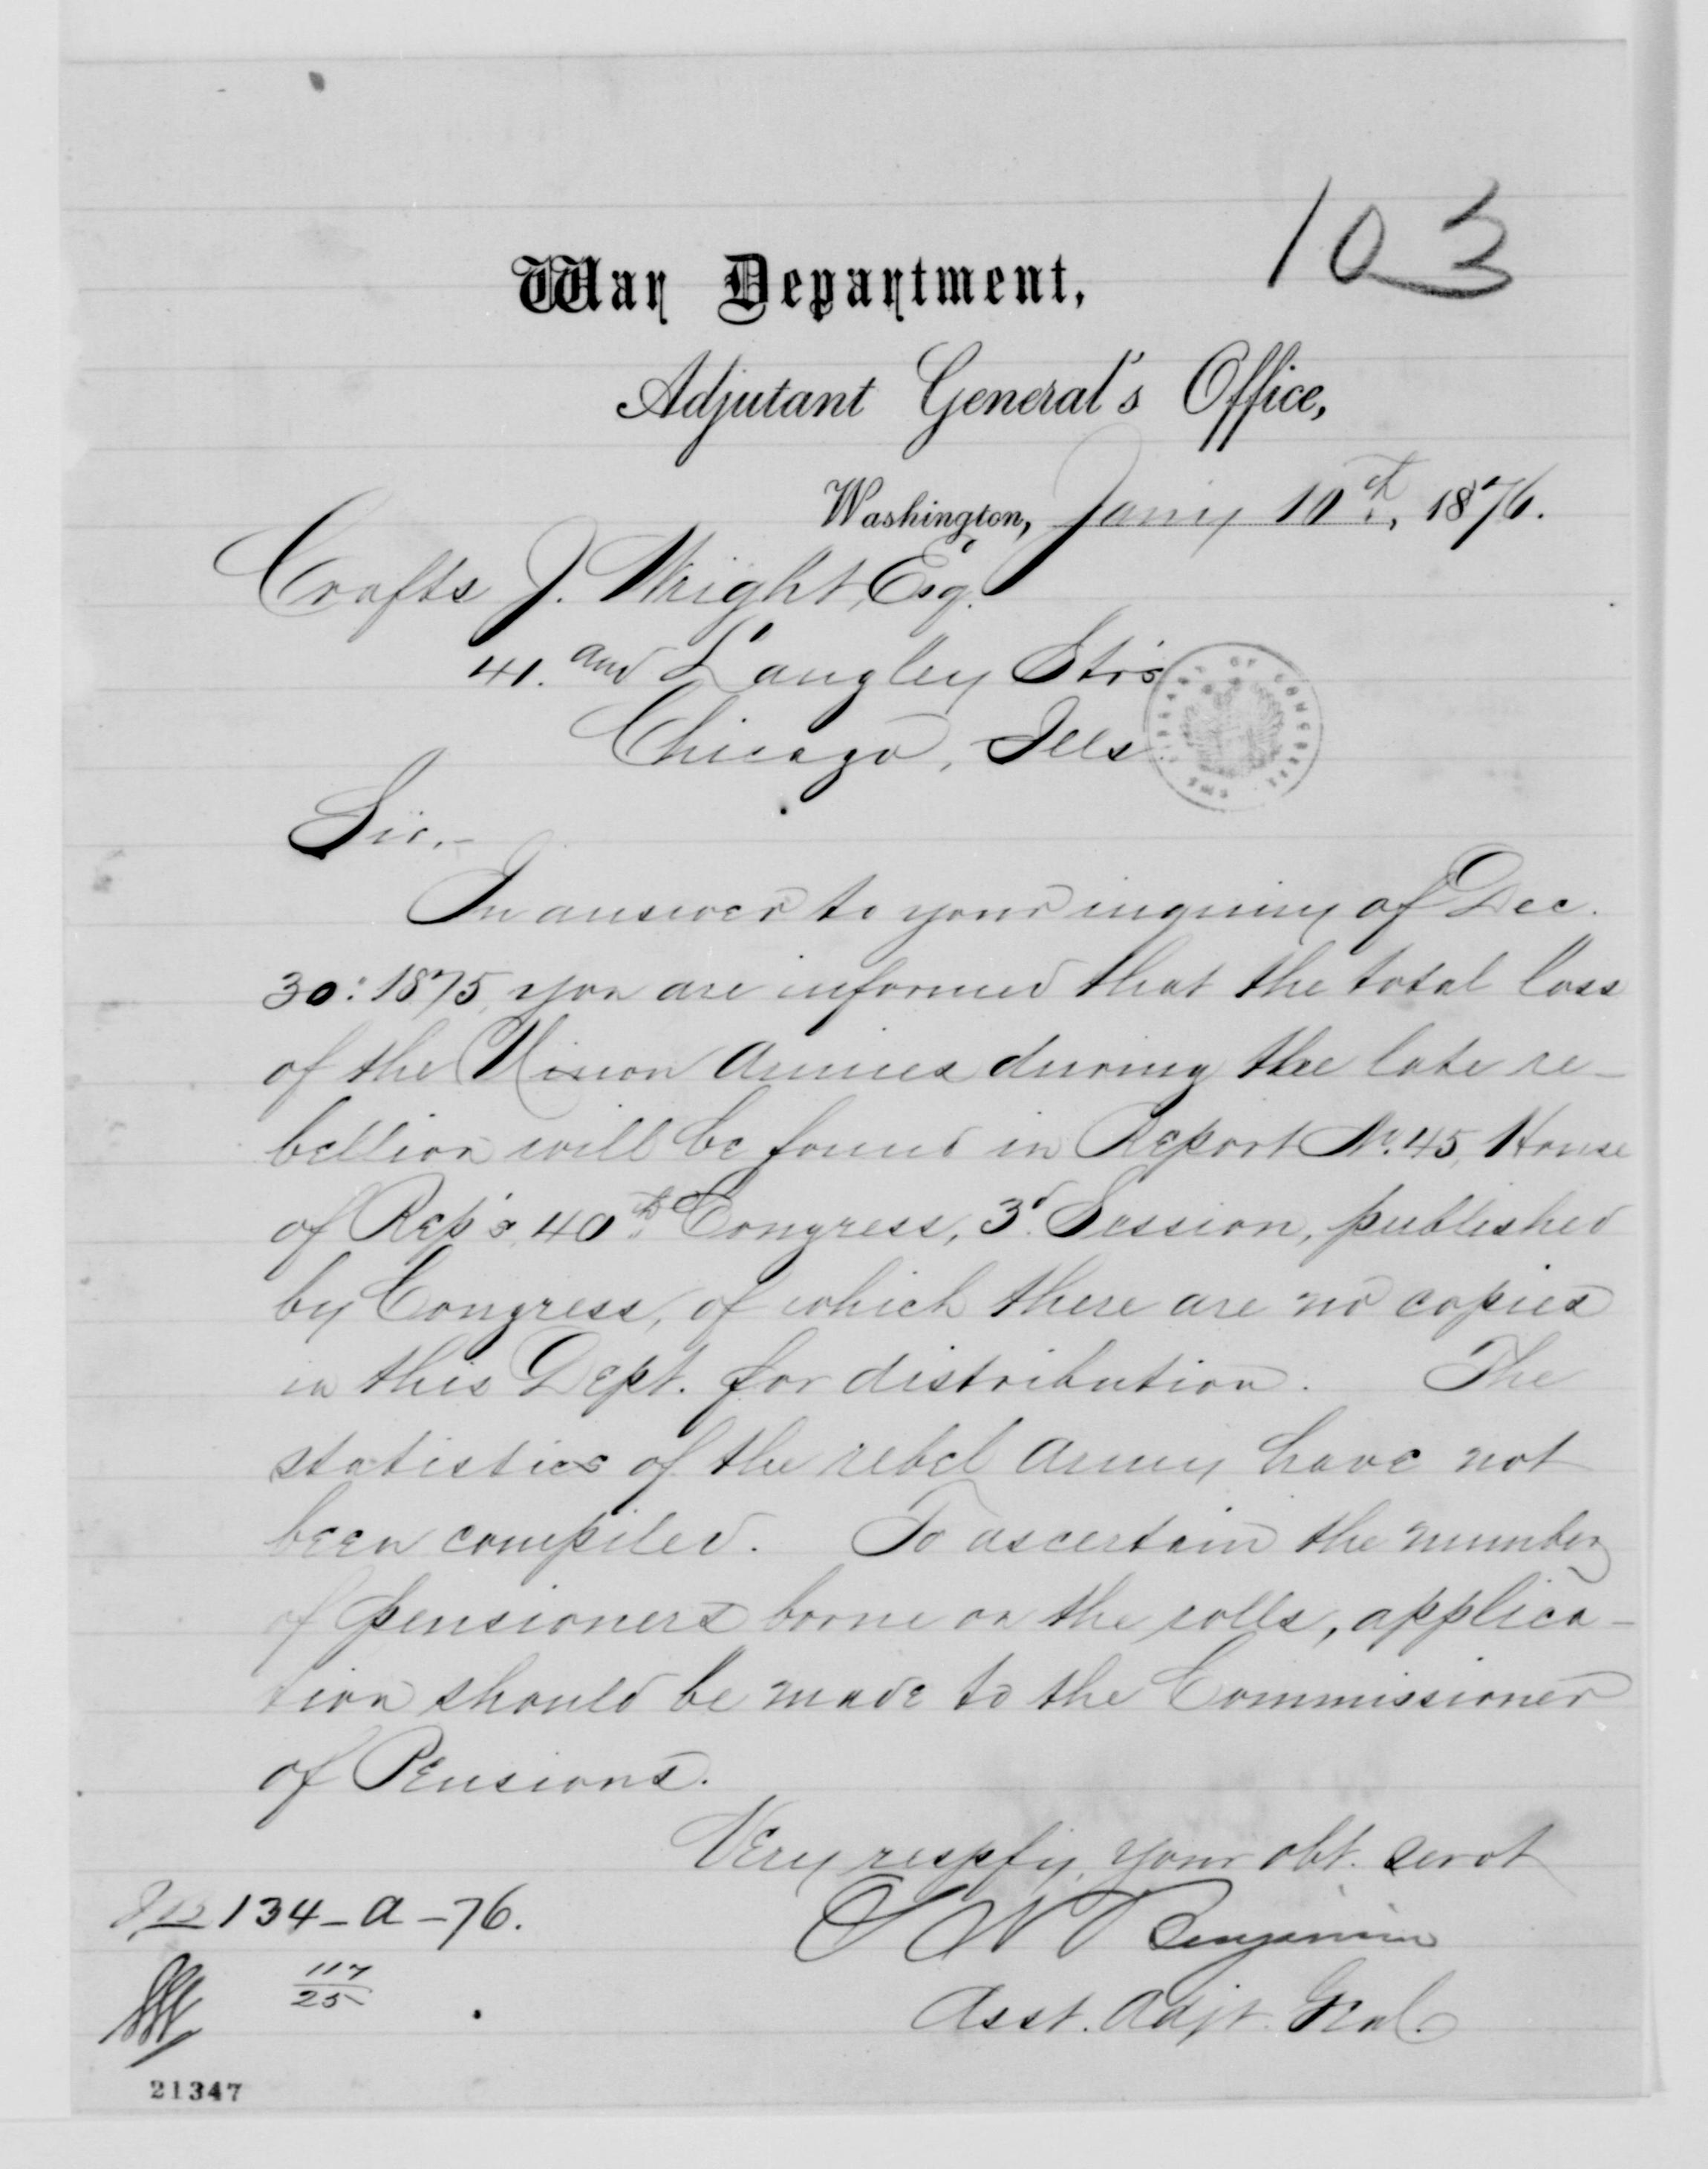 103
War Department,
Adjutant General's Office,
Washington, Jan'y 10th, 1876.
Crafts J. Wright, Esq.
41. and Langley Str's
Chicago, Ills.
Sir,-
In answer to your inquiry of Dec.
30: 1875, you are informed that the total loss
of the Union Armies during the late re-
bellion will be found in Report No. 45, House
of Rep's, 40th Congress, 3d. Session, published
by Congress, of which there are no copies
in this Dept. for distribution. The
statistics of the rebel Army have not
been compiled. To ascertain the number
of pensioners borne on the rolls, applica-
tion should be made to the Commissioner
of Pensions.
Very respfy, your obt. servt
S N Benjamin
Asst. Adjt. Genl.
134-A-76.
117
25
21347
LIBRARY OF CONGRESS